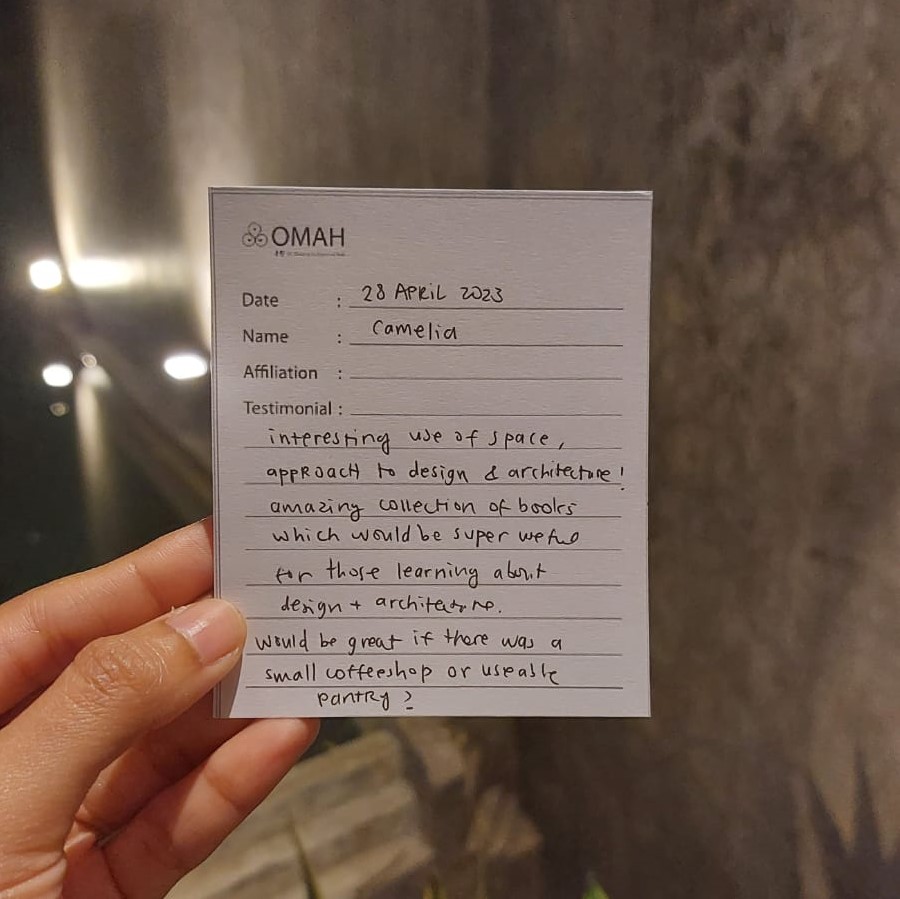 OMAH
Date : 28 APRIL 2023
Name : Camelia
Affiliation :
Testimonial :
interesting use of space,
appROACH to design & architecture!
amazing collection of books
which would be super useful
for those learning about
design + architecture.
would be great if there was a
small coffeeshop or useable
pantry?